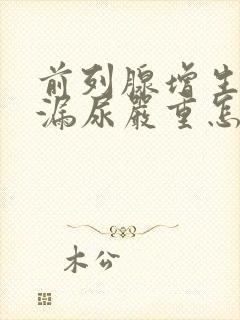 前列腺增生
漏尿严重怎
木公